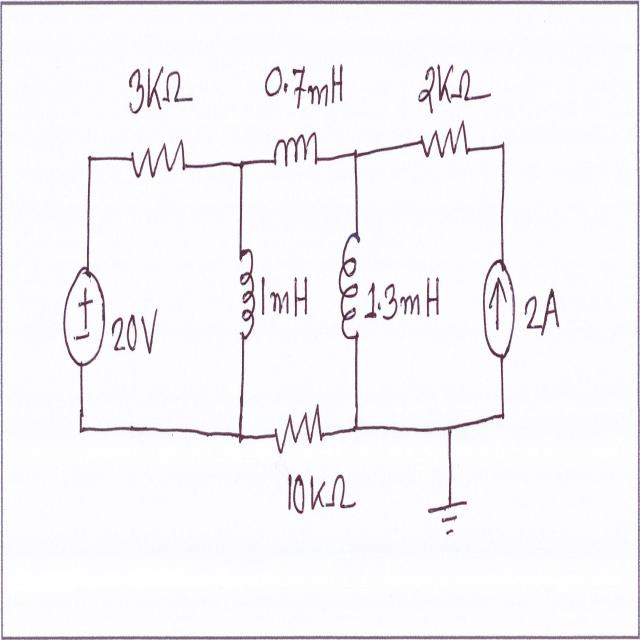 3KΩ
0.7mH
2KΩ
+
-
20V
1mH
1.3mH
2A
10KΩ